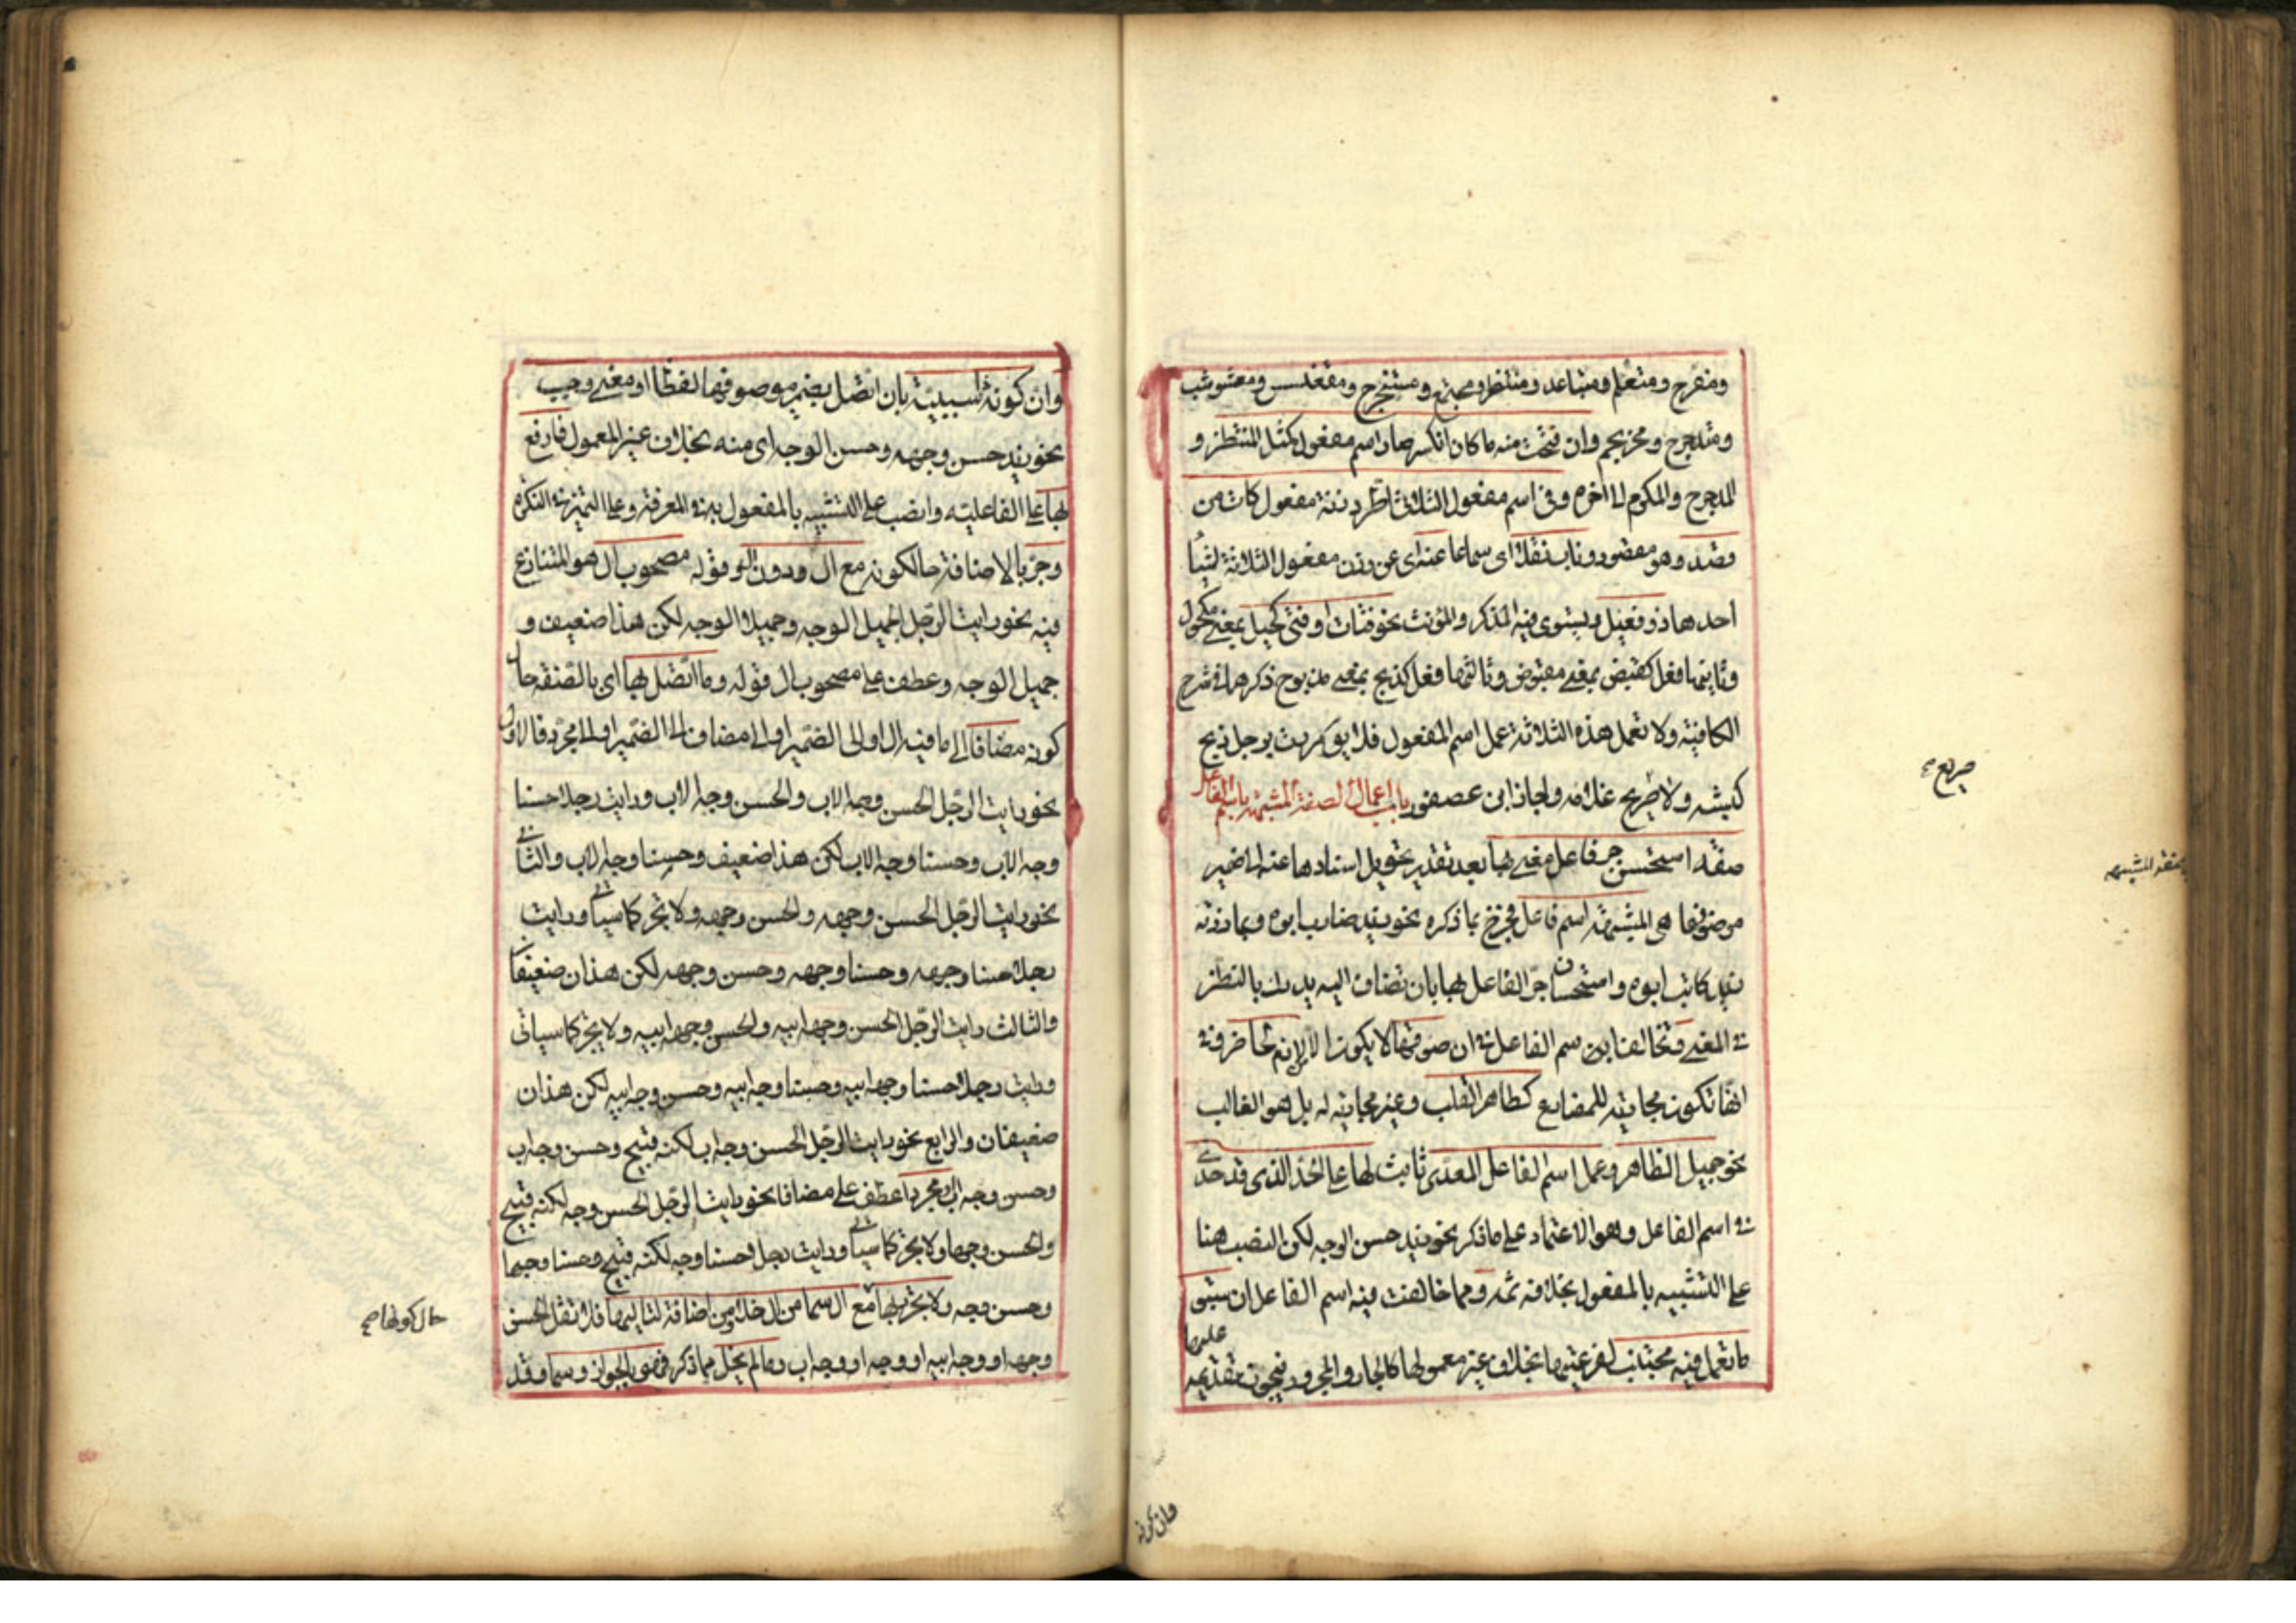 ومفرح ومتعلم ومتباعد ومنتظر ومجتمع ومستخرج ومقعنسس ومعشوشب
ومتدحرج ومحرنجم وان فتحت منه ما كان انكسر صار اسم مفعول كمثل المنتظر و
المدحرج والمكرم الى آخره وفى اسم مفعول الثلاثى اطرد زنة مفعول كآت من
قصد وهو مقصود وناب نقلا اى سماعا عنه اى عن وزن مفعول الثلاثة اشيأ
احدها ذو فعيل ويستوى فيه المذكر والمؤنث نحو فتات او فتى كحيل بمعنى مكحول
وثانيها فعل كقبض بمعنى مقبوض وثالثها فعل كذبح بمعنى مذبوح ذكرهما فى شرح
الكافية ولا تعمل هذه الثلاثة عمل اسم المفعول فلا يق مررت برجل ذبح
كبشه ولا صريع غلامه واجاز ابن عصفور باب اعمال الصفة المشبهة باسم الفاعل
صريع
صفة استحسن جر فاعل معنى بها بعد تقدير تحويل اسنادها عنه الى ضمير
الصفة المشبهه
موصوفها هى المشبهة اسم فاعل فخرج بما ذكره نحو زيد ضارب ابوه وبما زدته
زيد كاتب ابوه واستحسان جر الفاعل بها بان تضاف اليه يدرك بالنظر
فى المعنى وتخالف ايض اسم الفاعل فى ان صوغها لا يكون الا من لازم لحاضر وفى
انها تكون مجارية للمضارع كطاهر القلب وغير مجارية له بل هو الغالب
نحو جميل الظاهر وعمل اسم الفاعل المعدى ثابت لها على الحد الذى قد حدى
فى اسم الفاعل وهو الاعتماد على ما ذكر نحو زيد حسن الوجه لكن النصب هنا
على التشبيه بالمفعول بخلافه ثمه ومما خالفت فيه اسم الفاعل ان سبق
ما تعمل فيه مجتنب لفرعيتها بخلاف غير معمولها كالجار والمجرور فيجوز تقديمه عليها
وان كونه
وان كونه ذا سببية بان اتصل بضمير موصوفها لفظا او معنى وجب
نحو زيد حسن وجهه وحسن الوجه اى منه بخلاف غير المعمول فارفع
بها على الفاعليه وانصب على التشبيه بالمفعول به فى المعرفة وعلى التميز فى النكره
وجر بالاضافة حالكونه مع ال ودون ال وقوله مصحوب ال هو المتنازع
فيه نحو رايت الرجل الجميل الوجه وجميلا الوجه لكن هذا ضعيف و
جميل الوجه وعطف على مصحوب ال قوله وما اتصل بها اى بالصفة حال
كونه مضافا الى ما فيه ال او الى الضمير او الى مضاف الى الضمير او الى مجرد فالاول
نحو رايت الرجل الحسن وجه الاب والحسن وجه الاب ورايت رجلا حسنا
وجه الاب وحسنا وجه الاب لكن هذا ضعيف وحسنا وجه الاب والثانى
نحو رايت الرجل الحسن وجهه والحسن وجهه ولا تجر كما سيأتى ورايت
رجلا حسنا وجهه وحسنا وجهه وحسن وجهه لكن هذان ضعيفان
والثالث رايت الرجل الحسن وجه ابيه والحسن وجه ابيه ولا يجر كما سياتى
ورايت رجلا حسنا وجه ابيه وحسنا وجه ابيه وحسن وجه ابيه لكن هذان
ضعيفان والرابع نحو رايت الرجل الحسن وجه اب لكنه قبيح وحسن وجه اب
وحسن وجه اب او مجردا عطف على مضافا نحو رايت الرجل الحسن وجه لكنه قبيح
والحسن وجها ولا يجر كما سيأتى ورايت رجلا حسنا وجه لكنه قبيح وحسنا وجها
وحسن وجه ولا تجرر بها مع ال سما من ال خلا ومن اضافة لتاليها فلا تقل الحسن
حال كونها صح
وجهه او وجه ابيه او وجه او وجه اب وما لم يخل مما ذكر فهو بالجواز وسما وقد